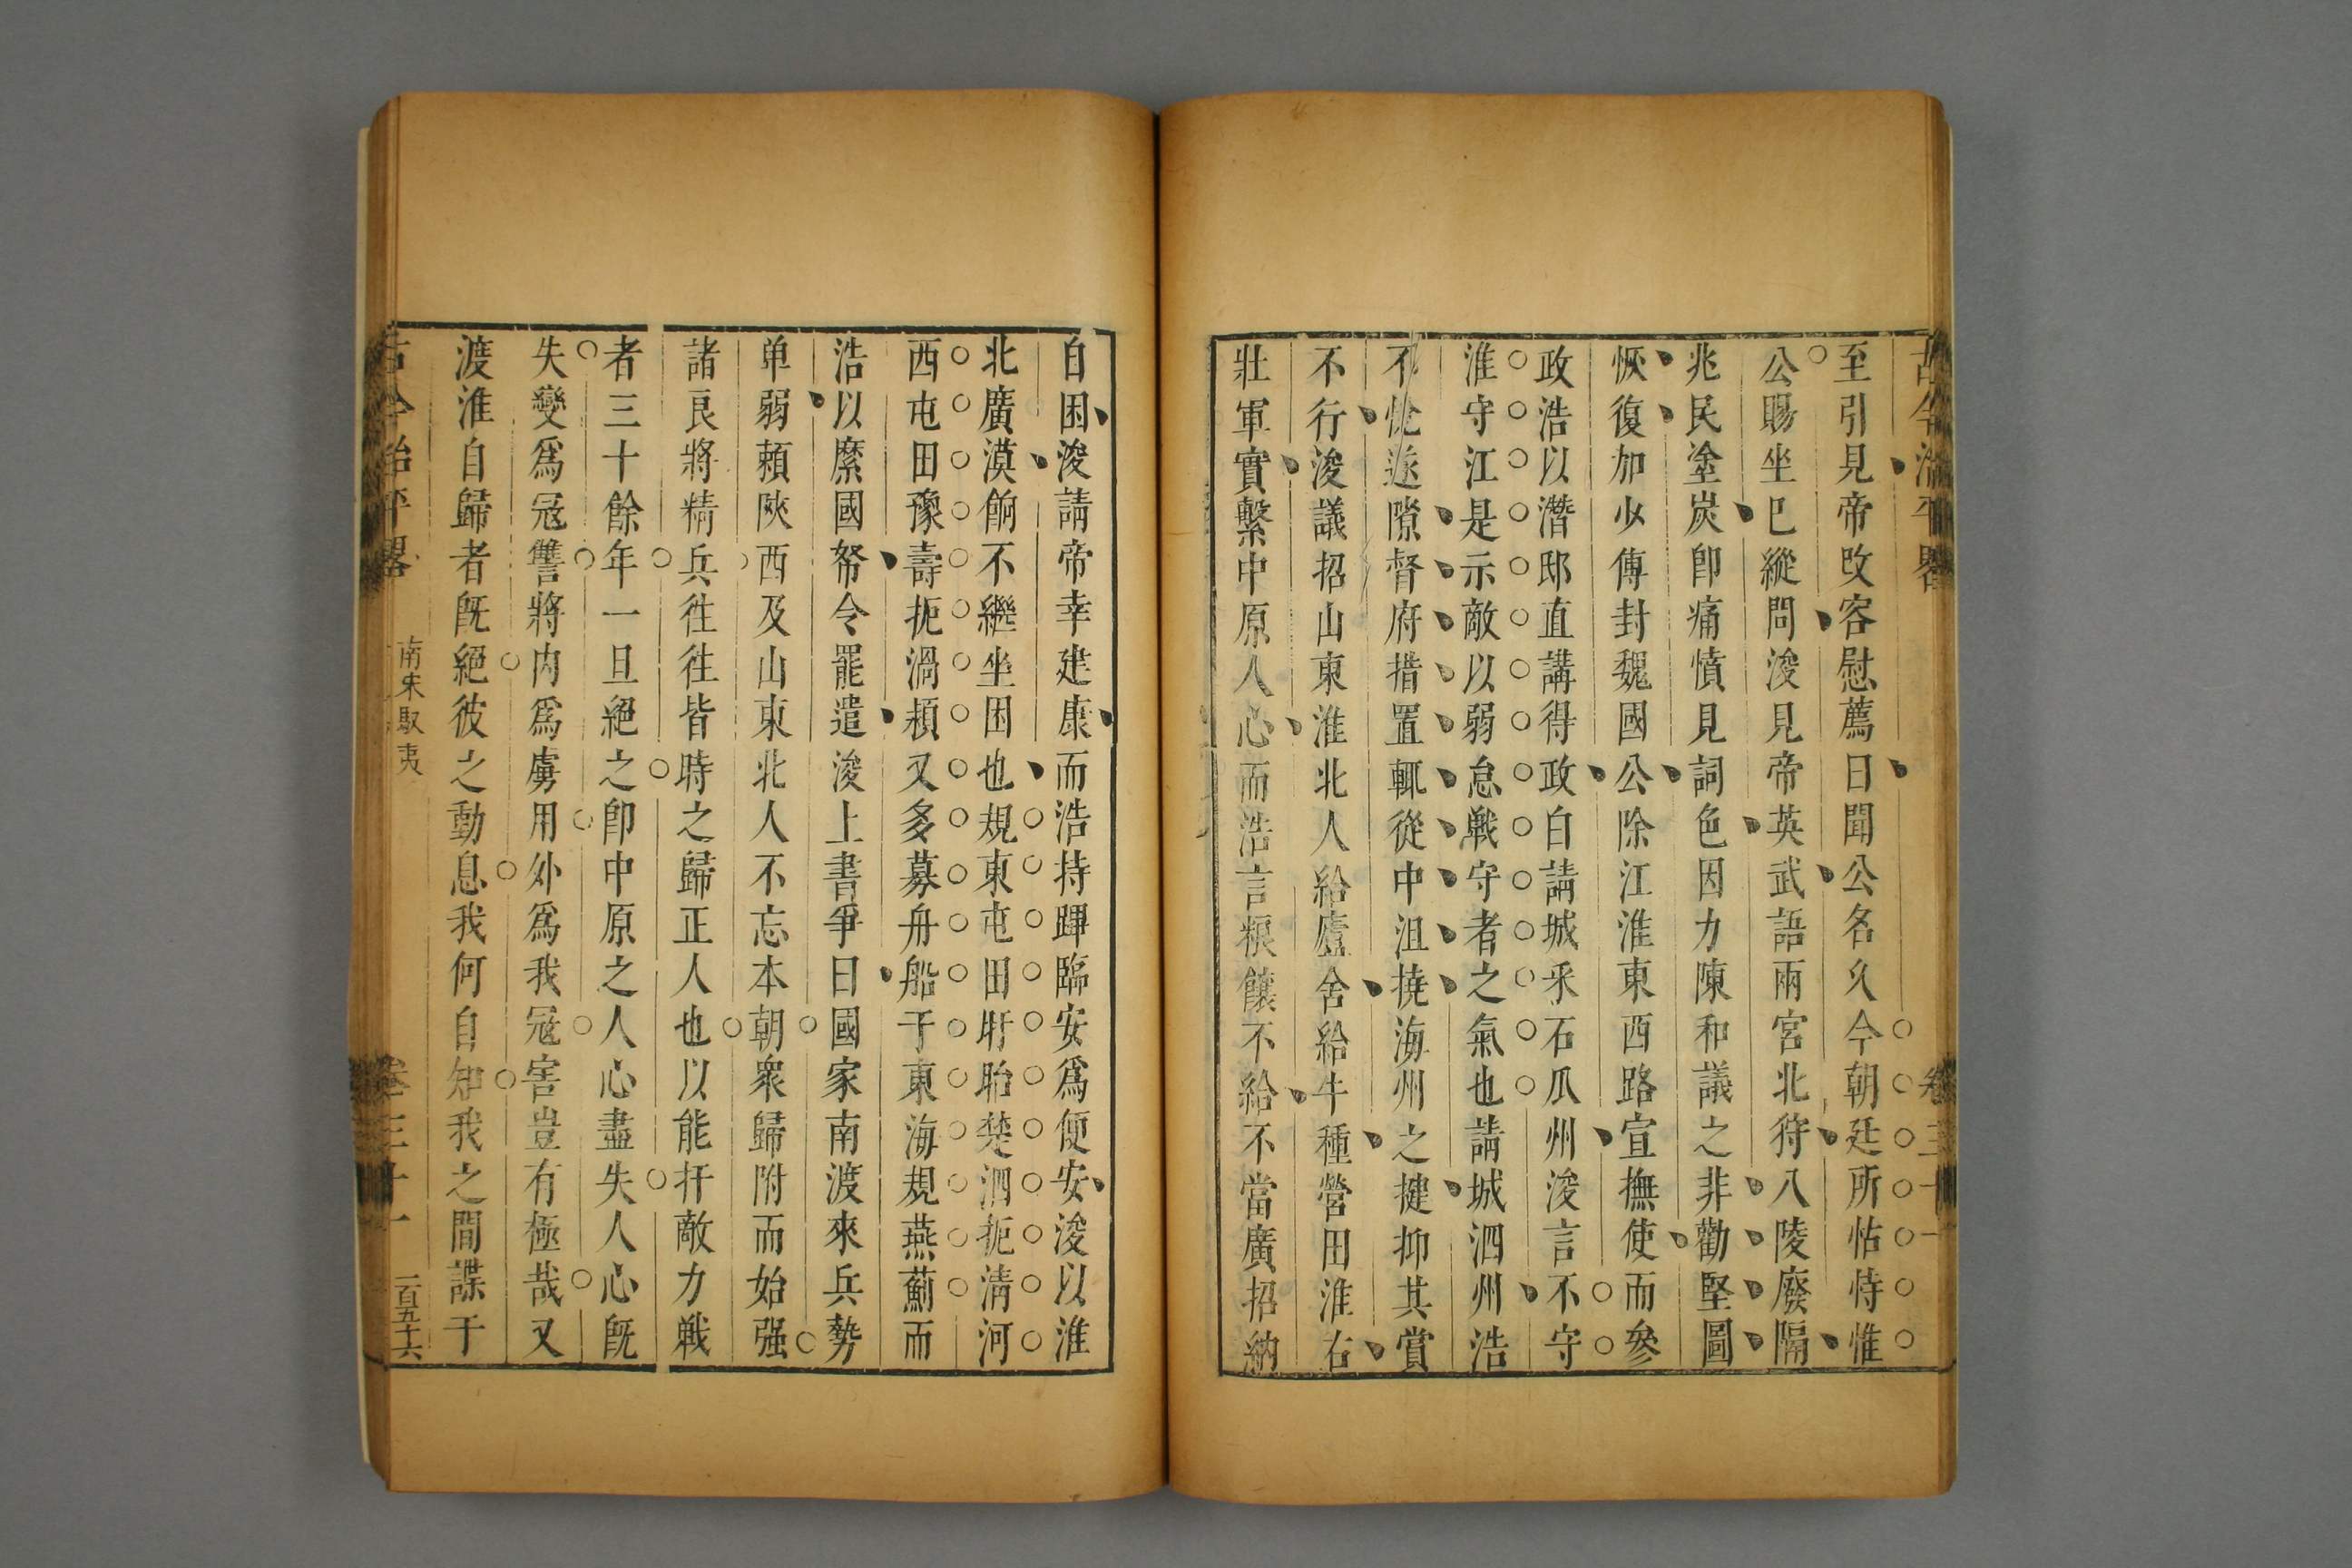 古今治平畧
卷三十一
至引見帝改容慰薦曰聞公名久今朝廷所怙恃惟
公賜坐巳縱問浚見帝英武語兩宮北狩八陵廢隔
兆民塗炭卽痛憤見詞色因力陳和議之非勸堅圖
恢復加少傳封魏國公除江淮東西路宣撫使而參
政浩以潛邸直講得政白請城采石瓜州浚言不守
淮守江是示敵以弱怠戰守者之氣也請城泗州浩
不忺遂隙督府措置輒從中沮撓海州之捷抑其賞
不行浚議招山東淮北人給廬舍給牛種營田淮右
壯軍實繫中原人心而浩言粮饟不給不當廣招納
自困浚請帝幸建康而浩持蹕臨安爲便安浚以淮
北廣漠餉不繼坐困也規東屯田盱眙楚泗扼淸河
西屯田豫壽扼渦頴又多募舟船于東海規燕薊而
浩以縻國帑令罷遣浚上書爭曰國家南渡來兵勢
单弱頼陝西及山東北人不忘本朝衆歸附而始强
諸良將精兵徃徃皆時之歸正人也以能扞敵力戰
者三十餘年一旦絕之卽中原之人心盡失人心旣
失變爲冦讐將内爲虜用外爲我冦害豈有極哉又
渡淮自歸者旣絕彼之動息我何自知我之間諜于
古今治平畧
南宋馭夷
卷三十一
一百五十六